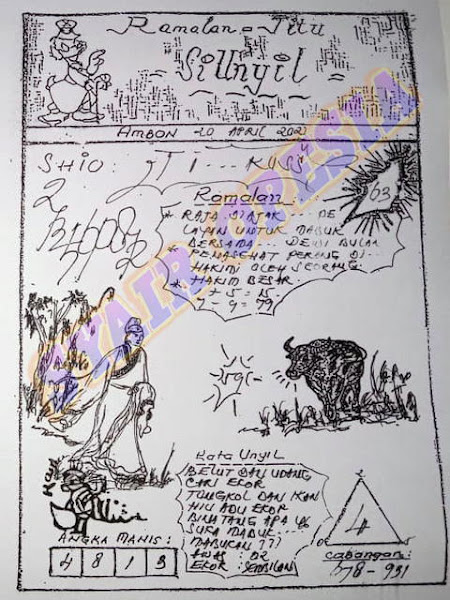 Ramalan = Jitu
Si Unyil
AMBON 20 APRIL 202
SHIO:
2
63
Ramalan
* RAJA DIAJAK ... PE
LAYAN UNTUK MABUK
BERSAMA ... DEWI BULAN
* PENASEHAT PERANG DI
HAKIMI OLEH SEORANG
* HAKIM BESAR
7 - 9 = 79
SYAIR OPESIA
Kata Unyil
BELUT DAN UDANG
CARI EKOR
TONGKOL DAN IKAN
HIU ADU EKOR
BINATANG APA YG
SUKA MABUK
MABUKAN ??
AWAS : 02
EKOR : SEMBILAN
ANGKA MANIS :
4 8 1 3
4
Cabangan :
378 - 931